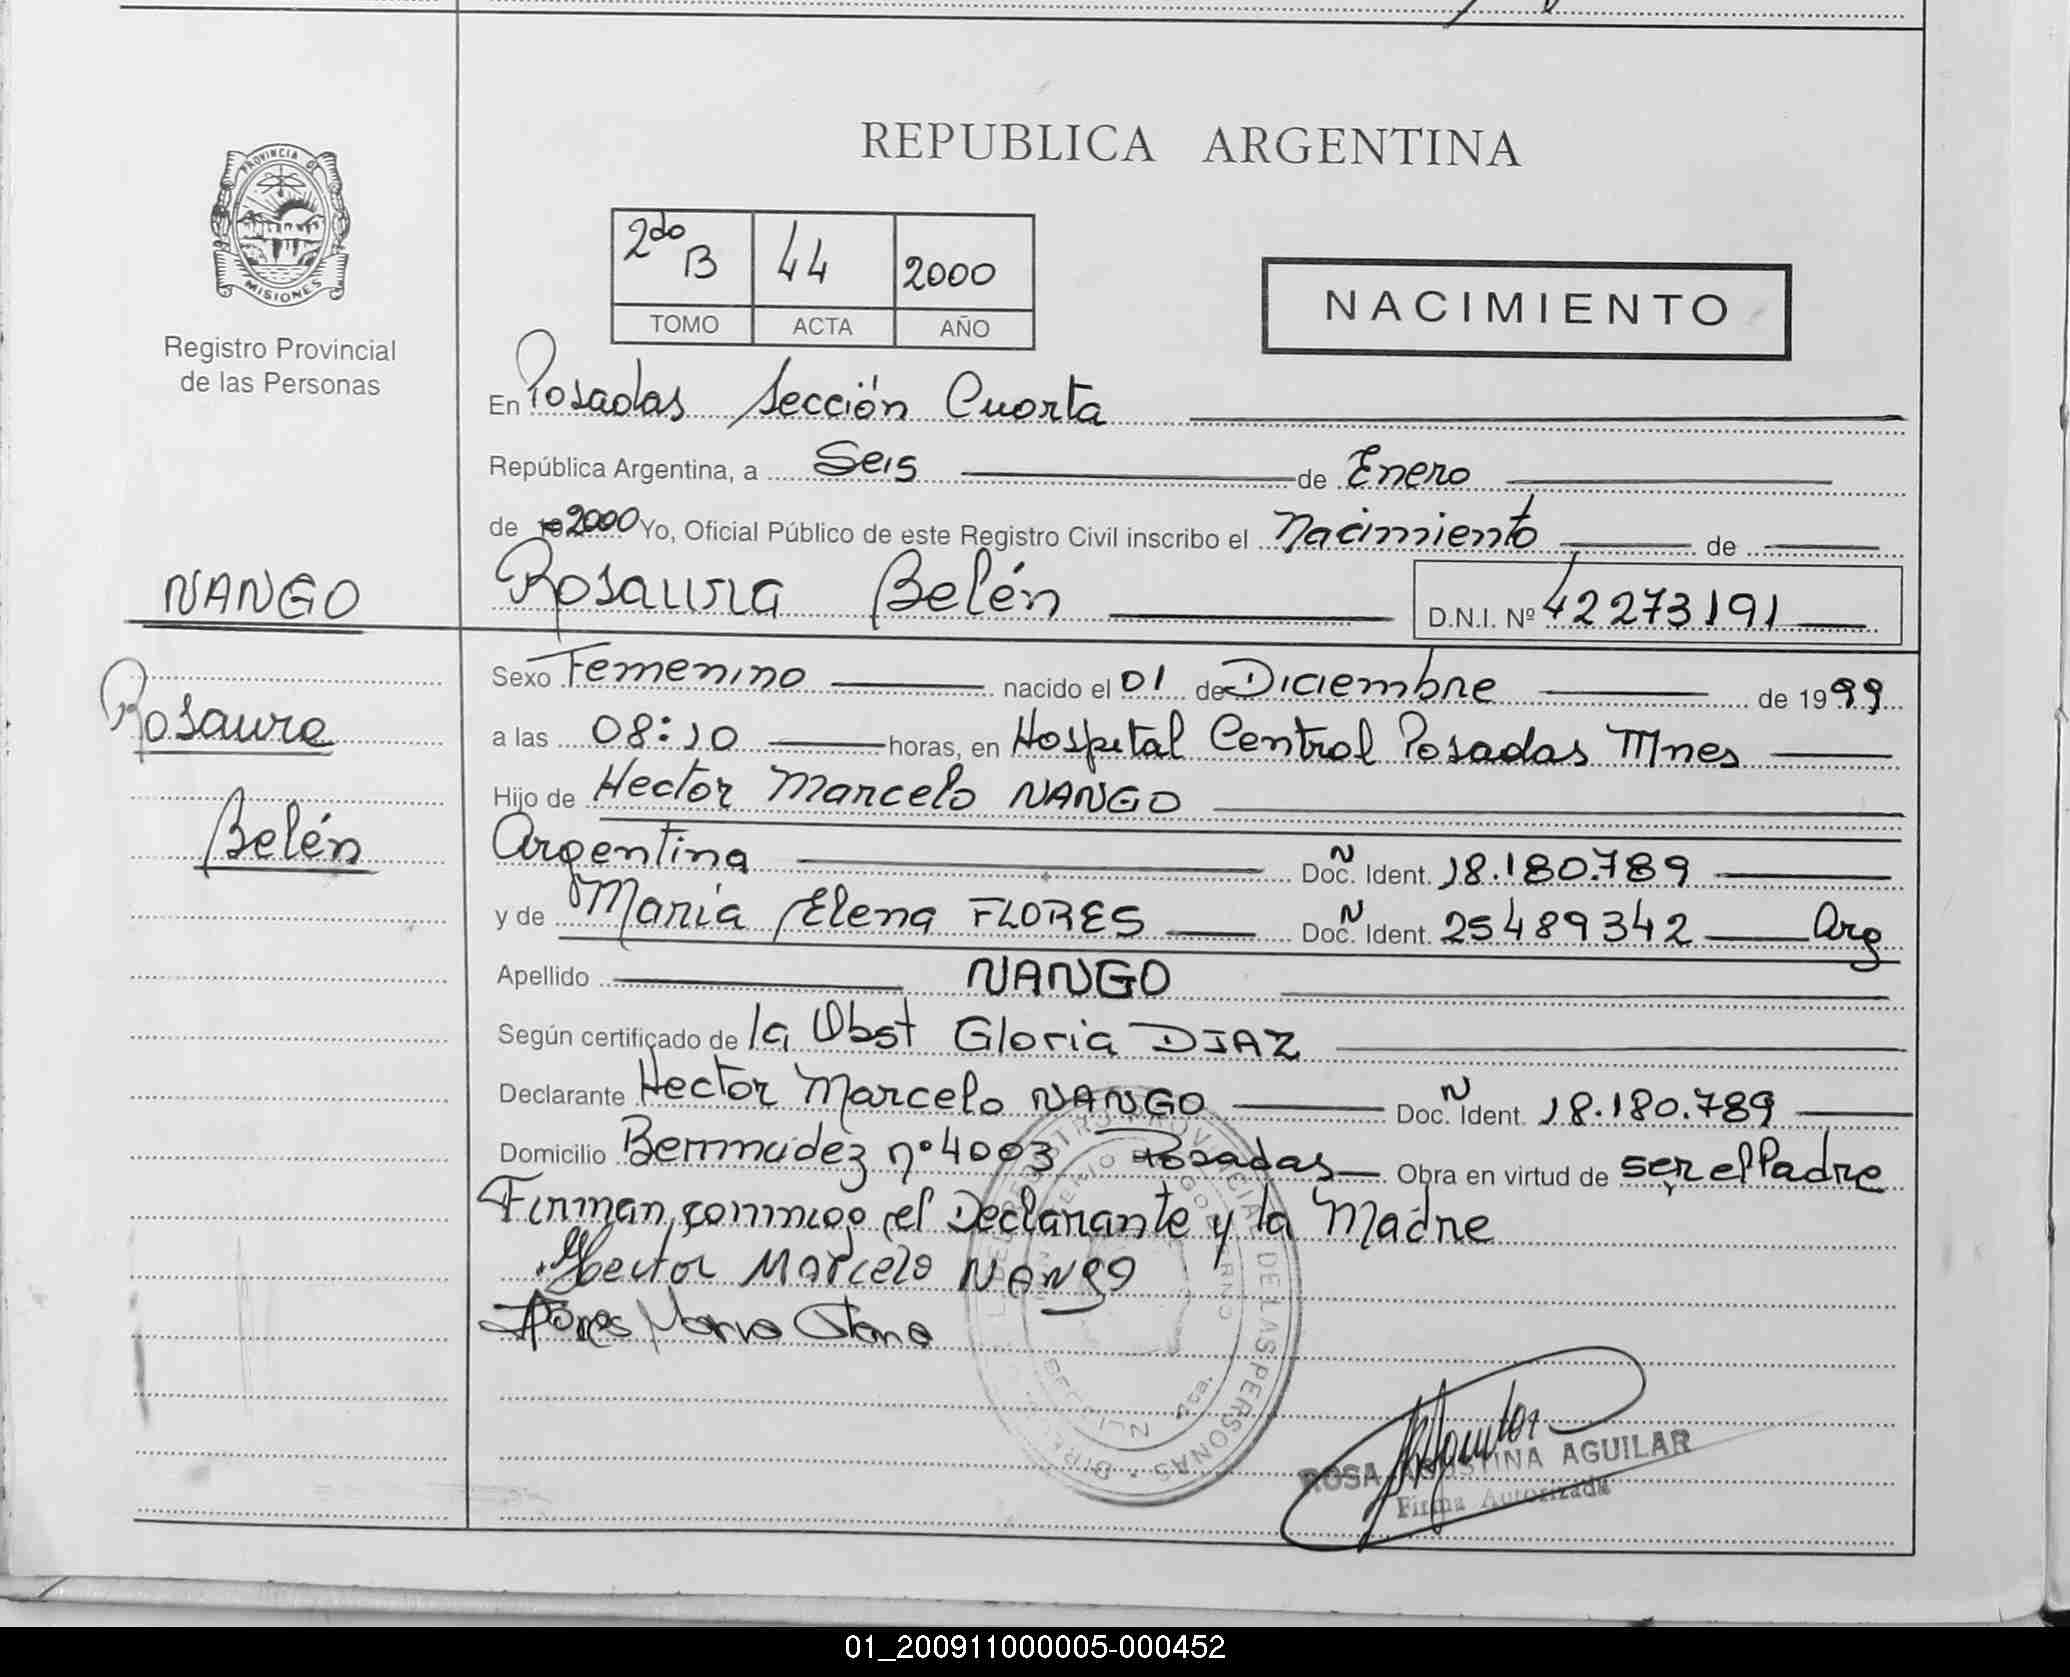 REPUBLICA ARGENTINA
PROVINCIA DE
MISIONES
Registro Provincial
de las Personas
2do B 44 2000
TOMO ACTA AÑO
NACIMIENTO
En Posadas Sección Cuarta
República Argentina, a Seis de Enero
de 2000 Yo, Oficial Público de este Registro Civil inscribo el Nacimiento de
NANGO Rosaura Belén D.N.I. Nº 42273191
Sexo Femenino nacido el 01 de Diciembre de 1999
Rosaura
a las 08:10 horas, en Hospital Central Posadas Mnes
Hijo de Hector Marcelo NANGO
Belén
Argentina Doc. Ident. 18.180.789
y de Maria Elena FLORES Doc. Ident. 25489342 Arg
Apellido NANGO
Según certificado de la Obst Gloria DIAZ
Declarante Hector Marcelo NANGO Doc. Ident. 18.180.789
Domicilio Bermudez nº 4003 Posadas Obra en virtud de ser el Padre
Firman conmigo el Declarante y la Madre
Hector Marcelo NANGO
Flores Maria Elena
ROSA AGUSTINA AGUILAR
Firma Autorizada
01_200911000005-000452